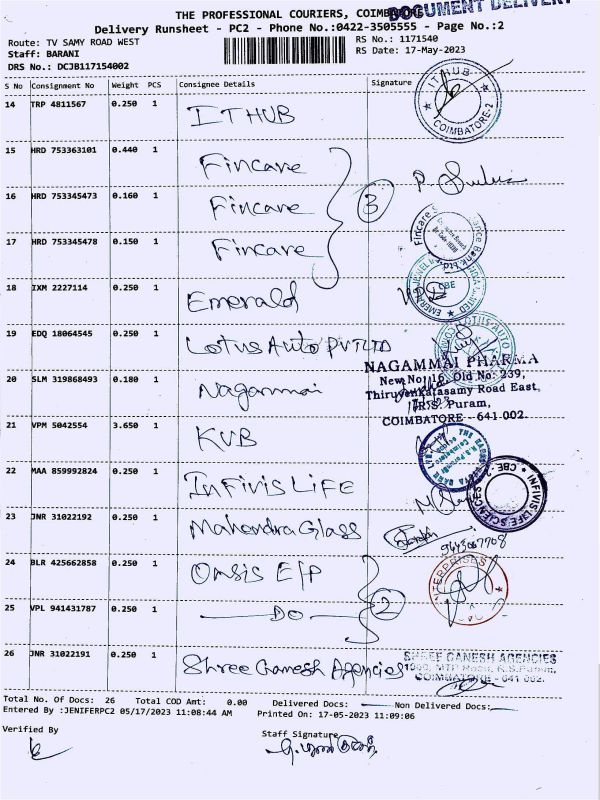 DOCUMENT DELIVERY
THE PROFESSIONAL COURIERS, COIMBATORE
Delivery Runsheet - PC2 - Phone No.:0422-3505555 - Page No.:2
Route: TV SAMY ROAD WEST
RS No.: 1171540
Staff: BARANI
RS Date: 17-May-2023
DRS No.: DCJB117154002
S No Consignment No Weight PCS Consignee Details Signature
14 TRP 4811567 0.250 1 ITHUB
ITHUB COIMBATORE-2
15 HRD 753363101 0.440 1 Fincare
16 HRD 753345473 0.160 1 Fincare 3
17 HRD 753345478 0.150 1 Fincare
18 IXM 2227114 0.250 1 Emerald
CBE
19 EDQ 18064545 0.250 1 Lotus Auto PVTLTD
NAGAMMAI PHARMA
New No: 16, Old No: 239,
Thiruvenkatasamy Road East,
R.S. Puram,
COIMBATORE - 641 002.
20 SLM 319868493 0.180 1 Nagammai
21 VPM 5042554 3.650 1 KVB
22 MAA 859992824 0.250 1 InFivis LIFE
INFIVIS LIFE SCIENCES CBE - 2
23 JNR 31022192 0.250 1 Mahendra Glass
9443067708
24 BLR 425662858 0.250 1 Omsis E/P
25 VPL 941431787 0.250 1 Do 2
26 JNR 31022191 0.250 1 Shree Ganesh Agencies
SHREE GANESH AGENCIES
COIMBATORE - 641 002.
Total No. Of Docs: 26 Total COD Amt: 0.00 Delivered Docs: Non Delivered Docs:
Entered By :JENIFERPC2 05/17/2023 11:08:44 AM Printed On: 17-05-2023 11:09:06
Verified By
Staff Signature